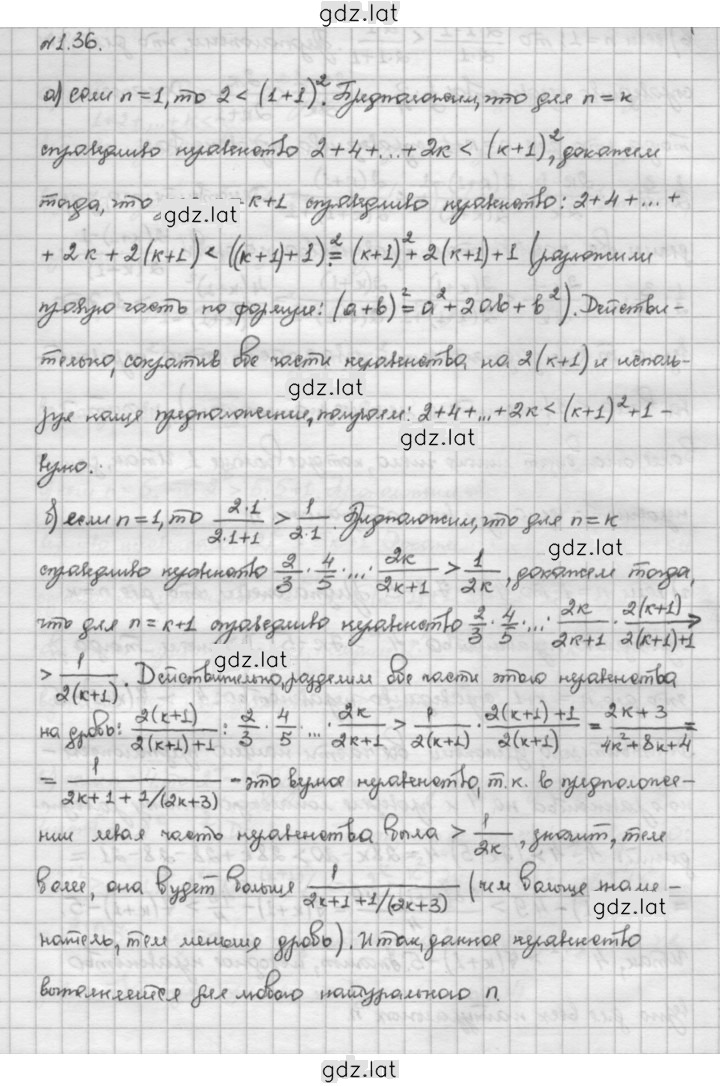 gdz.lat
№1.36.
а) если n=1, то 2 < (1+1)². Предположим, что для n=к
справедливо неравенство 2+4+...+2к < (к+1)², докажем
тогда, что к+1 справедливо неравенство: 2+4+...+
gdz.lat
+2к+2(к+1) < ((к+1)+1)² = (к+1)²+2(к+1)+1 (разложили
правую часть по формуле: (a+b)² = a²+2ab+b²). Действи-
тельно, сократив обе части неравенства на 2(к+1) и исполь-
gdz.lat
зуя наше предположение, получаем: 2+4+...+2к < (к+1)²+1 -
gdz.lat
верно.
б) если n=1, то 2·1/(2·1+1) > 1/(2·1). Предположим, что для n=к
gdz.lat
справедливо неравенство 2/3 · 4/5 · ... · 2к/(2к+1) > 1/(2к), докажем тогда,
что для n=к+1 справедливо неравенство 2/3 · 4/5 · ... · 2к/(2к+1) · 2(к+1)/(2(к+1)+1) >
gdz.lat
> 1/(2(к+1)). Действительно, разделим обе части этого неравенства
на дробь: 2(к+1)/(2(к+1)+1) : 2/3 · 4/5 · ... · 2к/(2к+1) > 1/(2(к+1)) · (2(к+1)+1)/(2(к+1)) = (2к+3)/(4к²+8к+4) =
gdz.lat
= 1/(2к+1+1/(2к+3)) - это верное неравенство, т.к. в предположе-
нии левая часть неравенства была > 1/(2к), значит, тем
более, она будет больше 1/(2к+1+1/(2к+3)) (чем больше знаме-
gdz.lat
натель, тем меньше дробь). Итак, данное неравенство
выполняется для любого натурального n.
gdz.lat